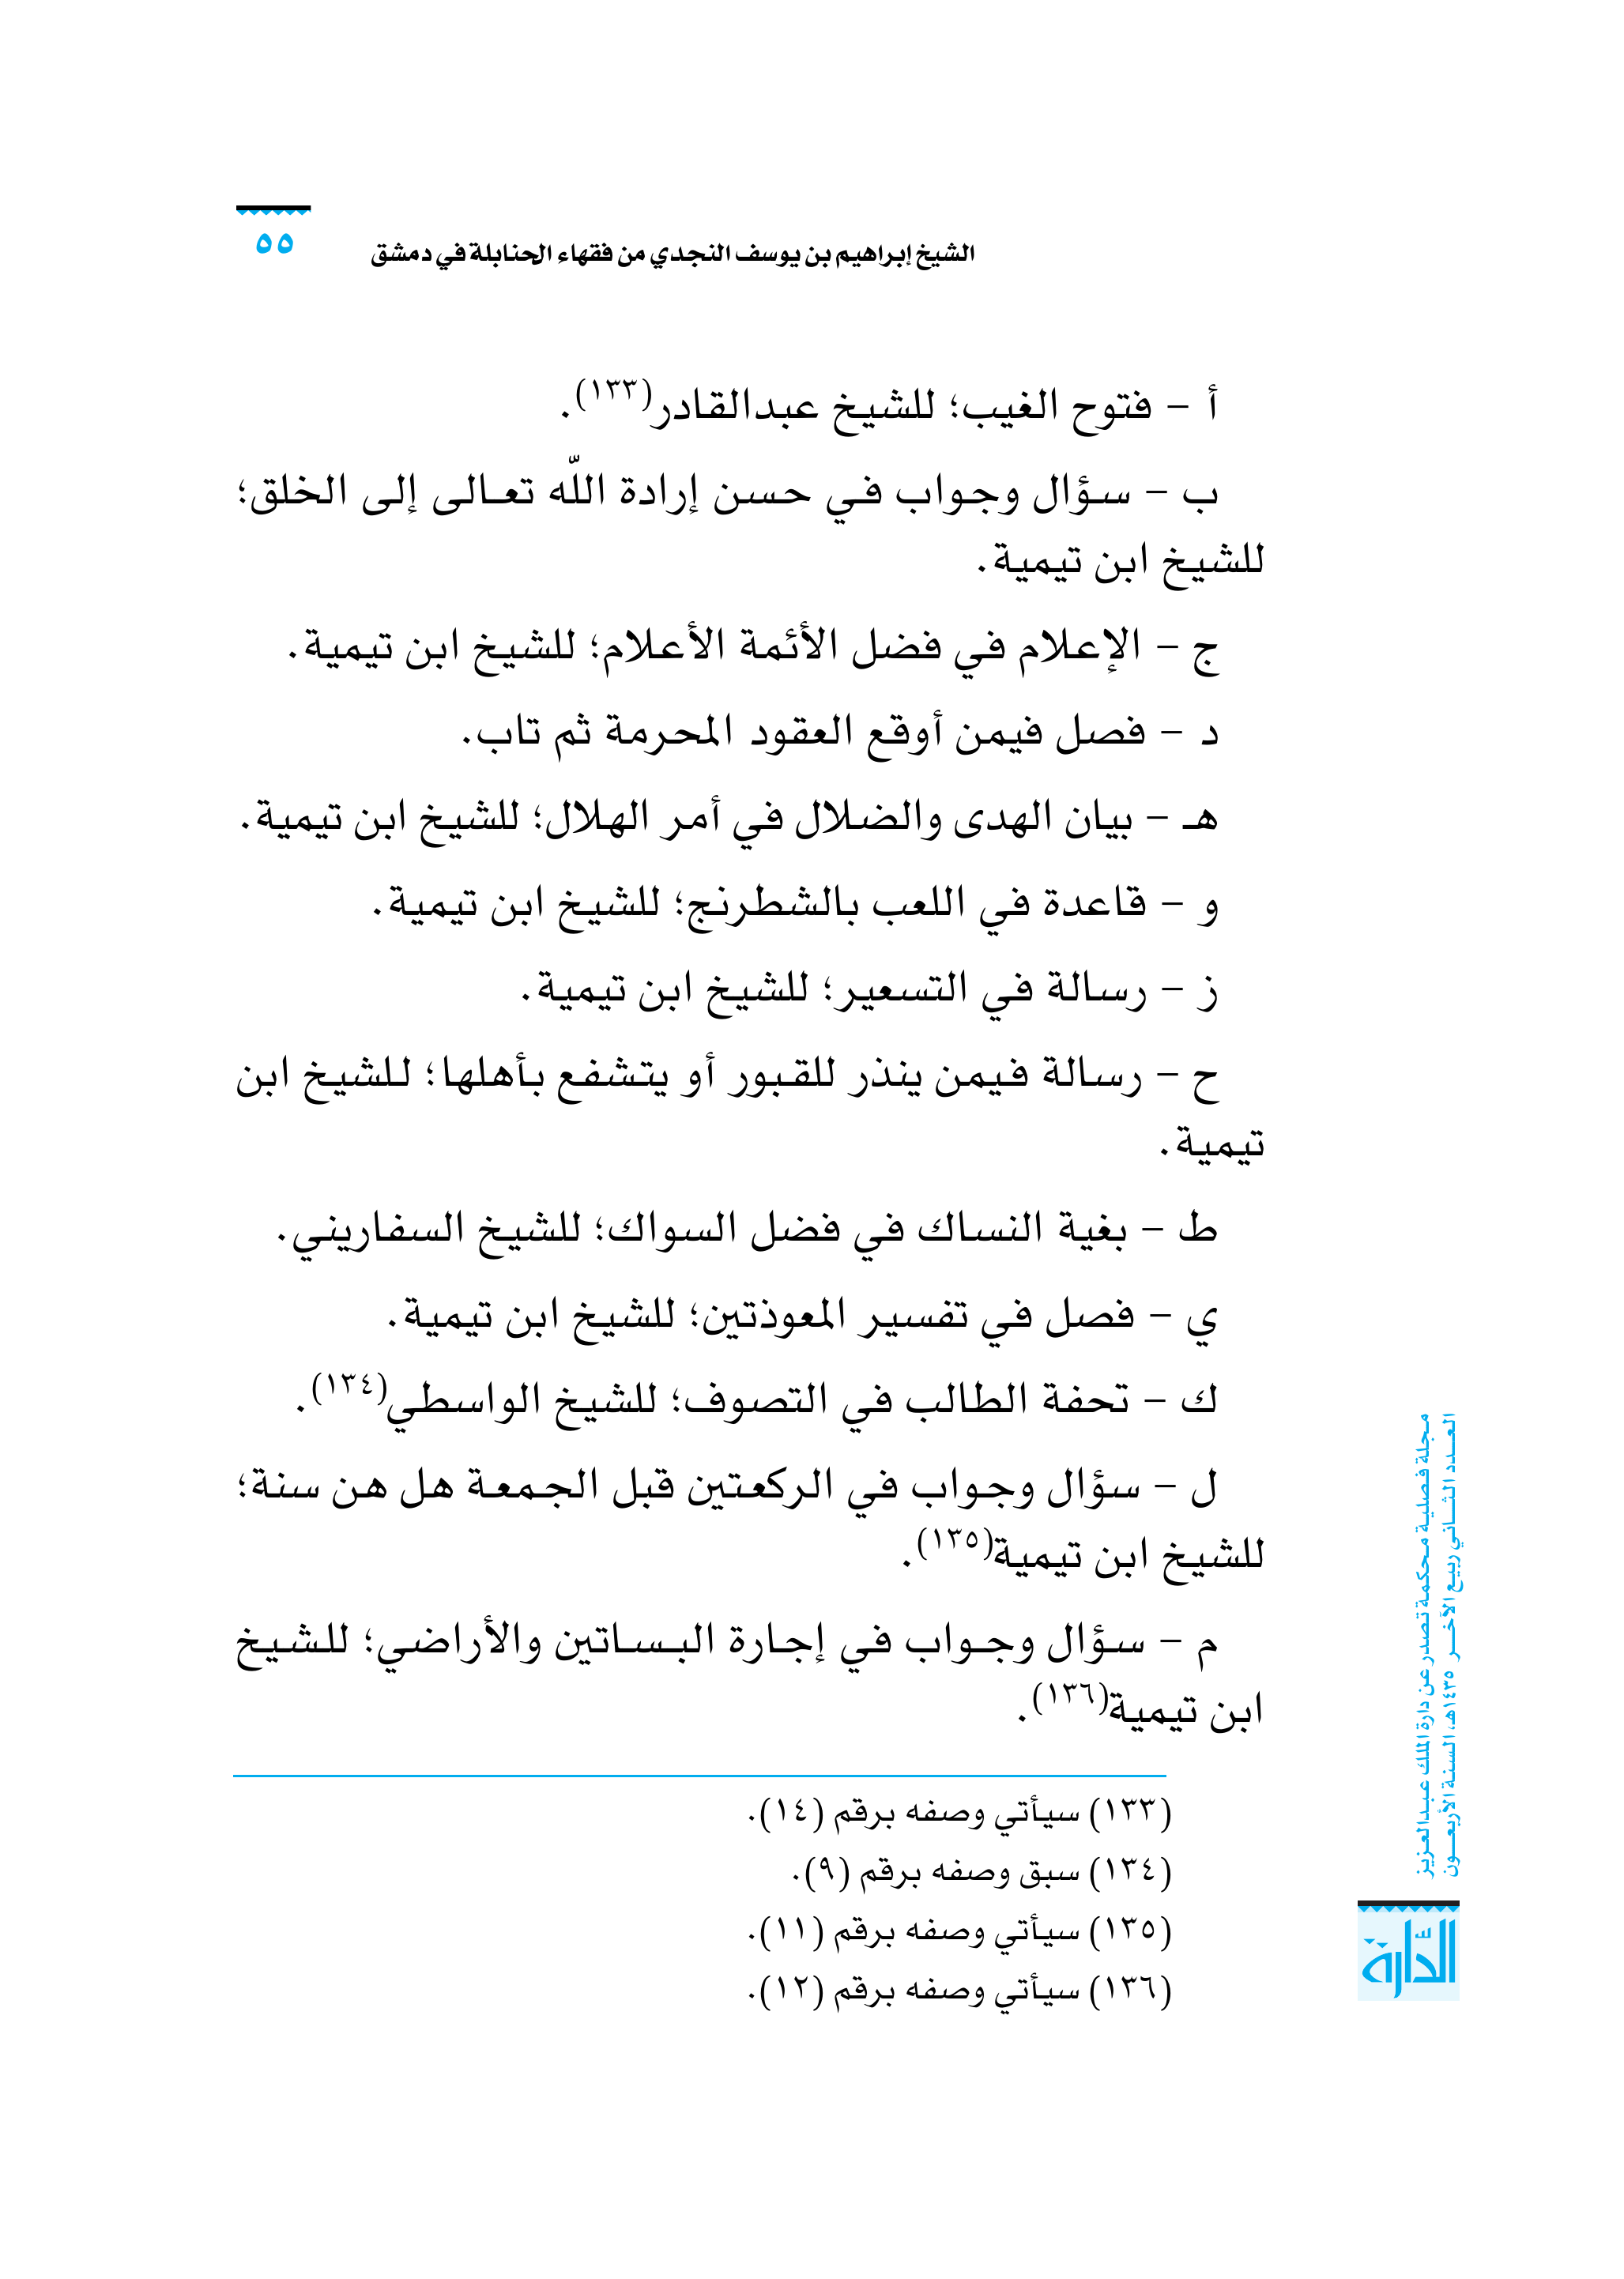 الشيخ إبراهيم بن يوسف النجدي من فقهاء الحنابلة في دمشق
٥٥
أ – فتوح الغيب؛ للشيخ عبدالقادر(١٣٣).
ب – سؤال وجواب في حسن إرادة اللّه تعالى إلى الخلق؛
للشيخ ابن تيمية.
ج – الإعلام في فضل الأئمة الأعلام؛ للشيخ ابن تيمية.
د – فصل فيمن أوقع العقود المحرمة ثم تاب.
هـ – بيان الهدى والضلال في أمر الهلال؛ للشيخ ابن تيمية.
و – قاعدة في اللعب بالشطرنج؛ للشيخ ابن تيمية.
ز – رسالة في التسعير؛ للشيخ ابن تيمية.
ح – رسالة فيمن ينذر للقبور أو يتشفع بأهلها؛ للشيخ ابن
تيمية.
ط – بغية النساك في فضل السواك؛ للشيخ السفاريني.
ي – فصل في تفسير المعوذتين؛ للشيخ ابن تيمية.
ك – تحفة الطالب في التصوف؛ للشيخ الواسطي(١٣٤).
ل – سؤال وجواب في الركعتين قبل الجمعة هل هن سنة؛
للشيخ ابن تيمية(١٣٥).
م – سؤال وجواب في إجارة البساتين والأراضي؛ للشيخ
ابن تيمية(١٣٦).
(١٣٣) سيأتي وصفه برقم (١٤).
(١٣٤) سبق وصفه برقم (٩).
(١٣٥) سيأتي وصفه برقم (١١).
(١٣٦) سيأتي وصفه برقم (١٢).
مجلة فصلية محكمة تصدر عن دارة الملك عبدالعزيز
العدد الثاني ربيع الآخر ١٤٣٥هـ، السنة الأربعون
الدارة